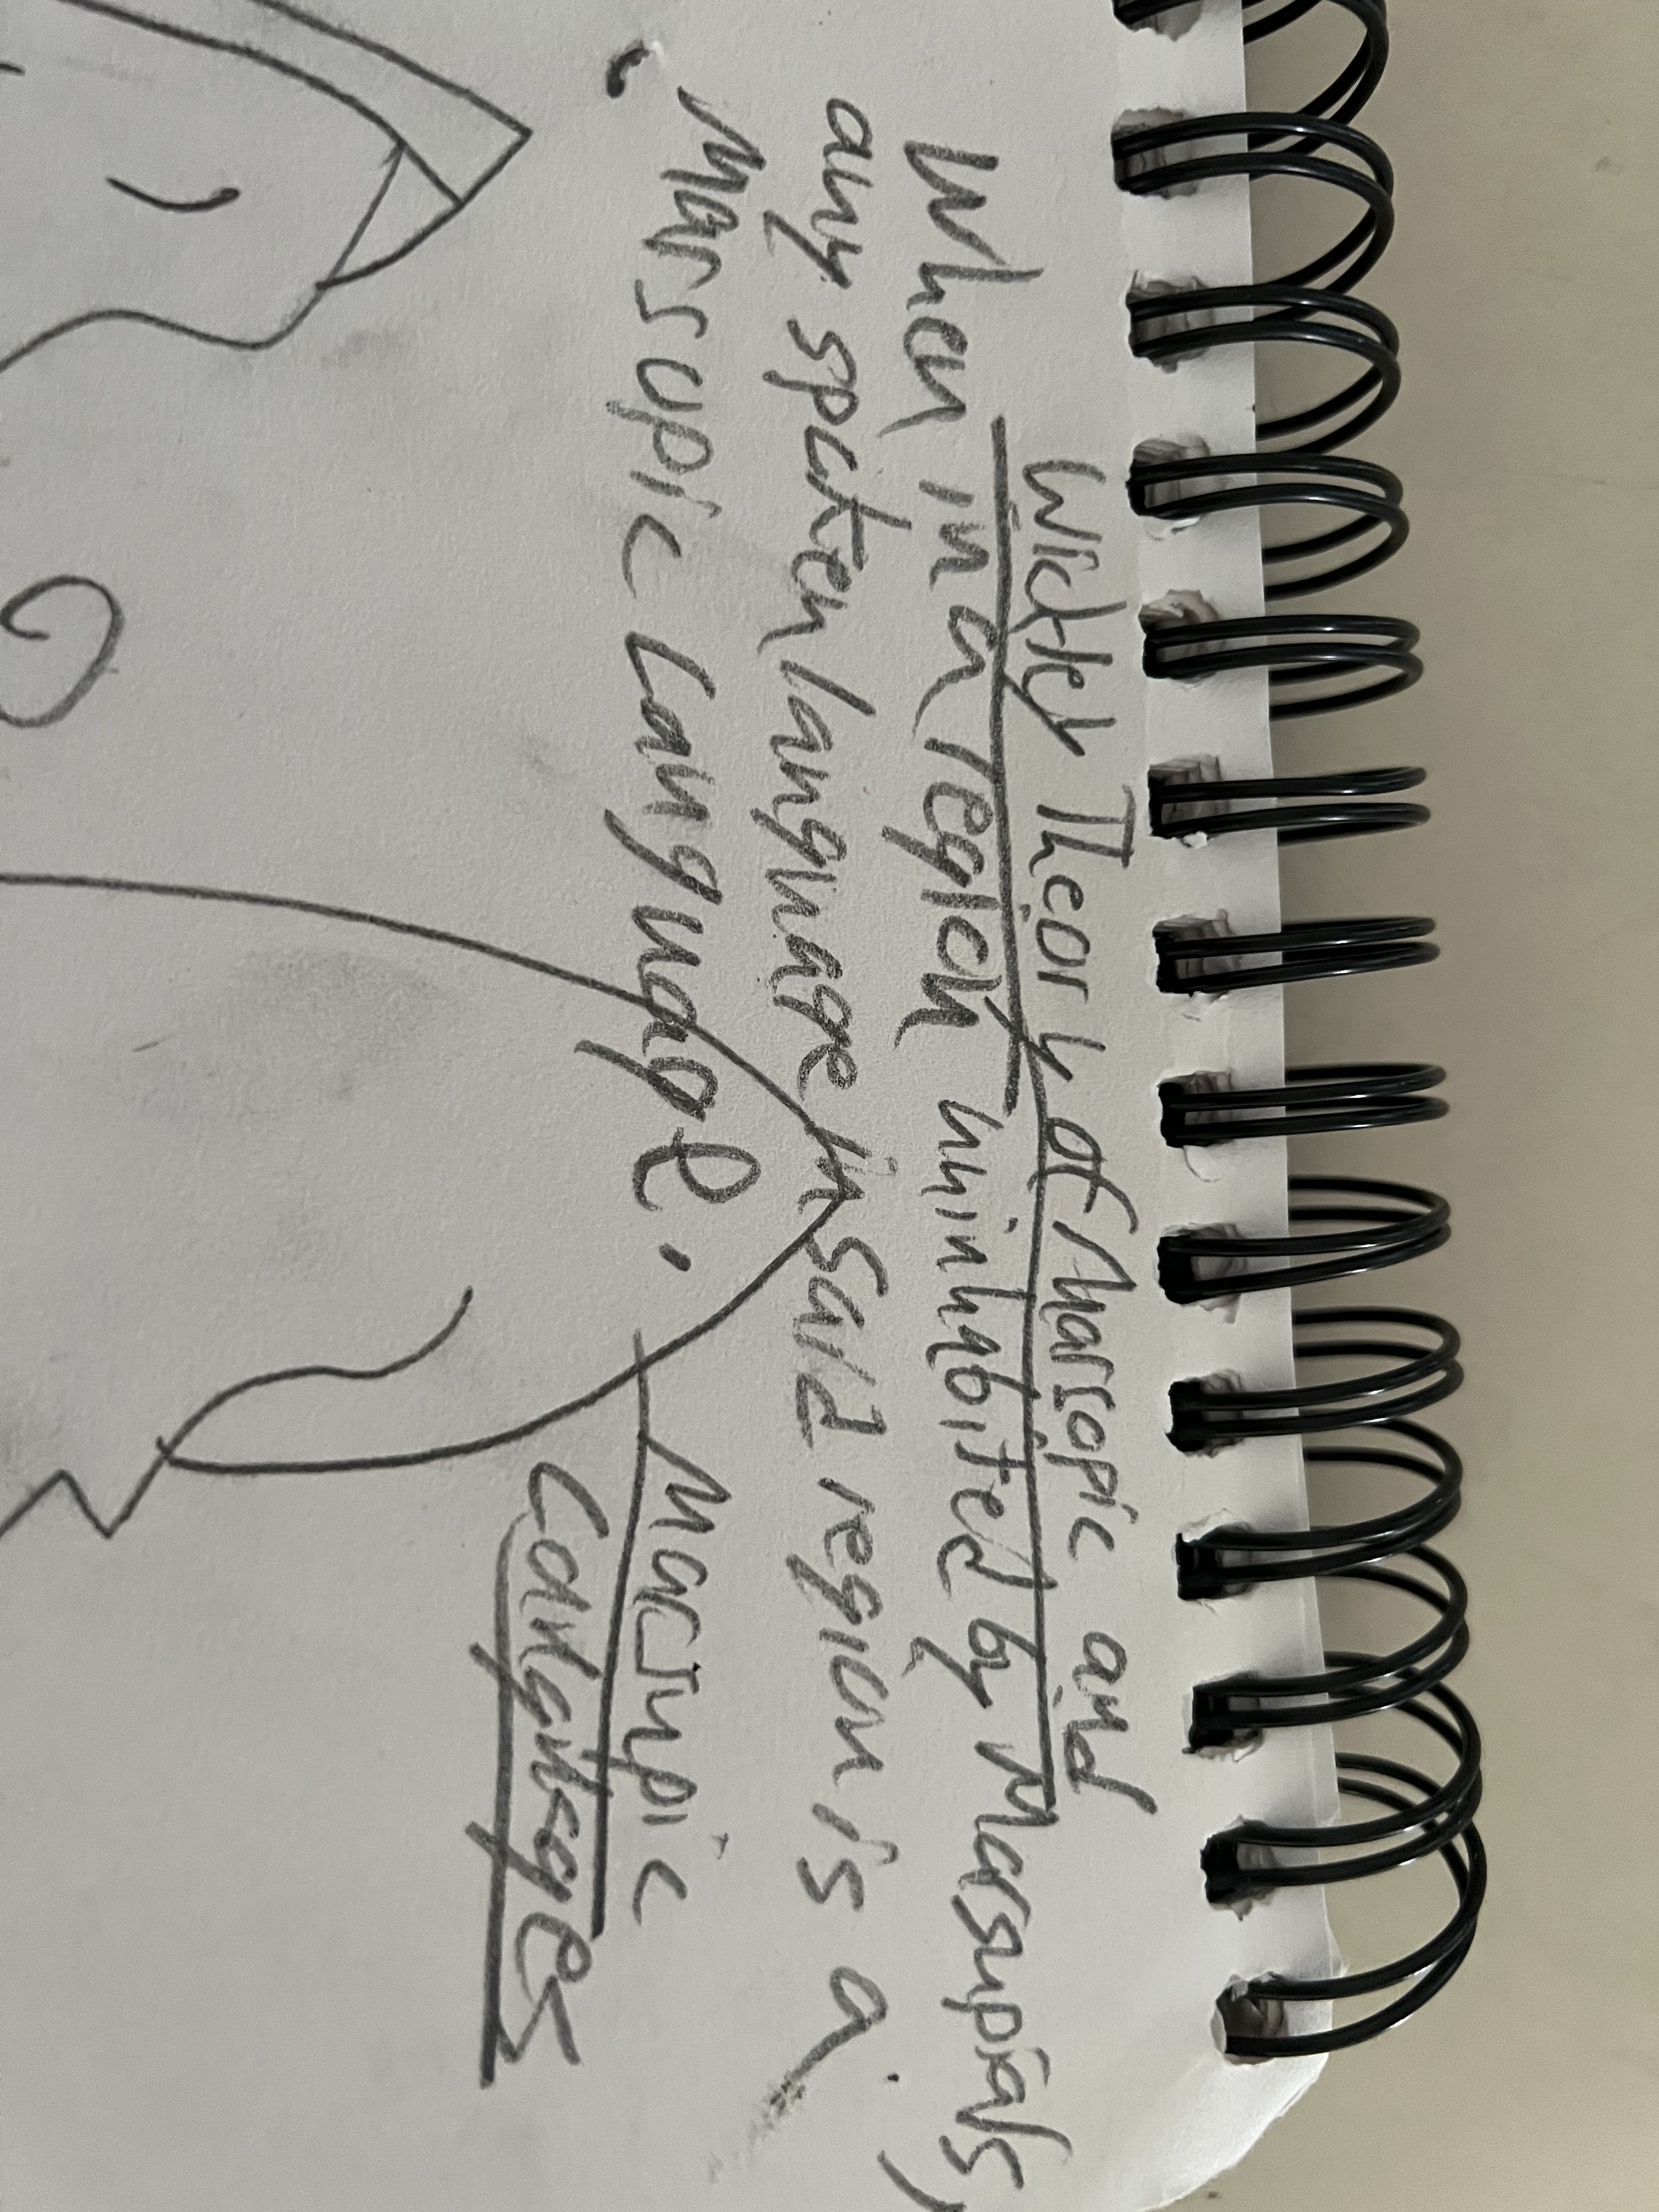 Wickley Theory of Marsopic and
When in a region uninhabited by Marsupials,
any spoken language in said region is a
Marsupic Language.
Macrupic
Languages